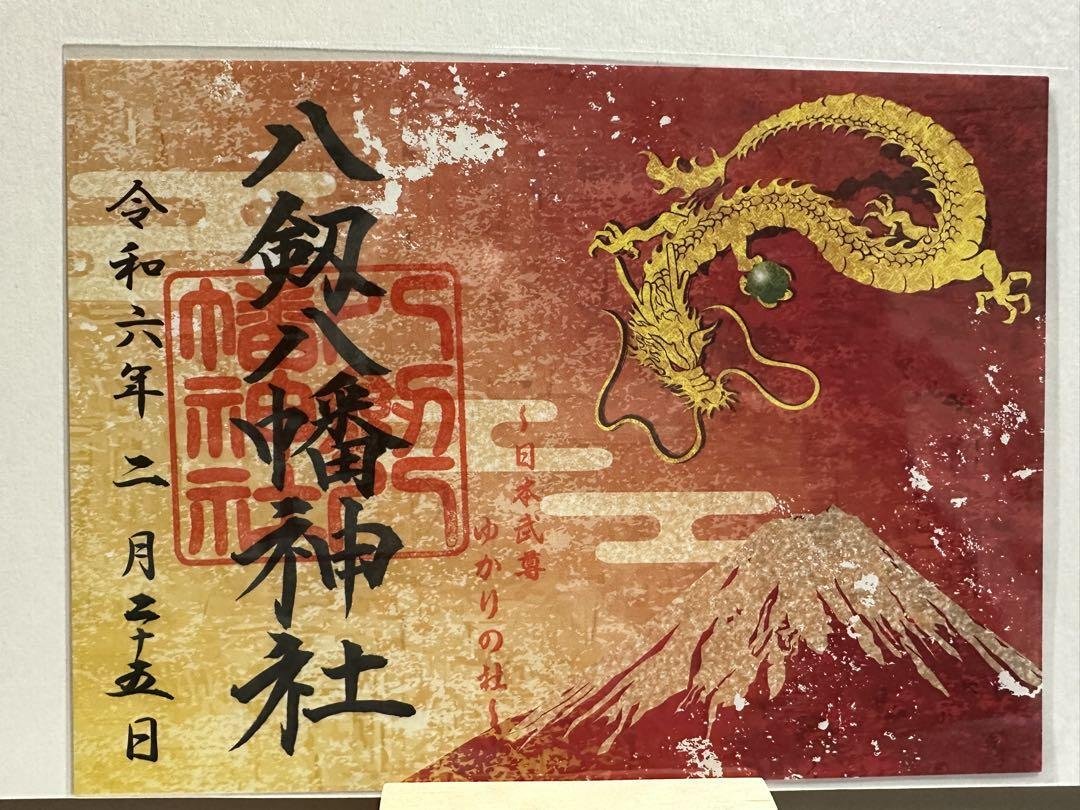 〜日本武尊
ゆかりの社〜
八剱八幡神社
八剱八幡神社
令和六年二月二十五日